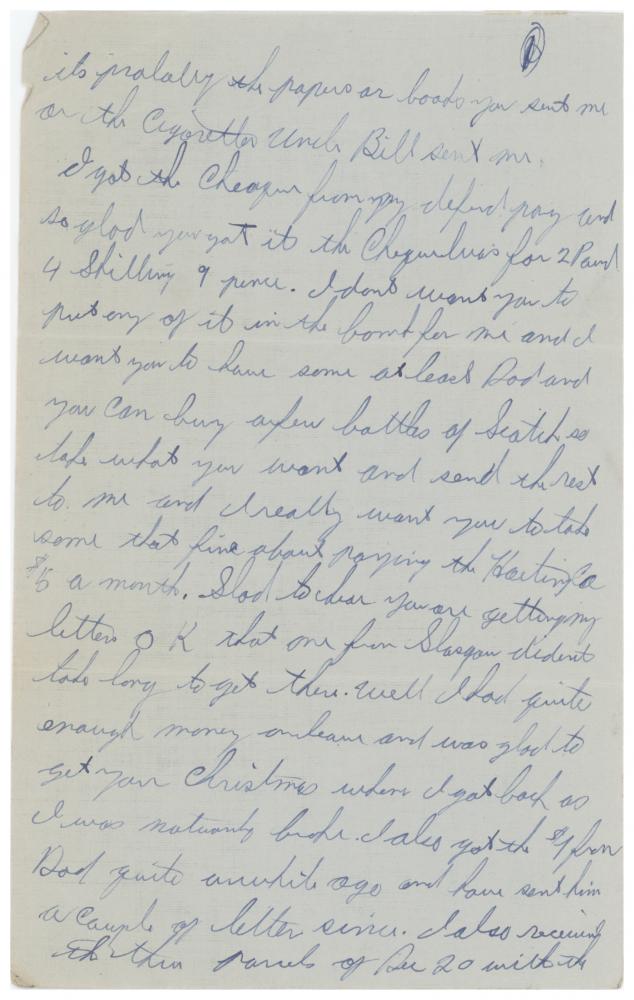 its probably the papers or books you sent me
or the Cigarettes Uncle Bill sent me.
I got the Cheque from my deferd pay and
so glad you got it the Cheque was for 2 Pound
4 Shilling 9 pence. I dont want you to
put any of it in the bank for me and I
want you to have some at least Dad and
you can buy a few bottles of Scotch so
take what you want and send the rest
to me and I really want you to take
some that fine about paying the Co
$5 a month. Glad to hear you are getting my
letters O K that one from Glasgow dident
take long to get there. Well I had quite
enough money on leave and was glad to
get your Christmas when I got back as
I was naturaly broke. I also got the $1 from
Dad quite awhile ago and have sent him
a couple of letter since. I also receiving
the parcels of Dec 20 with the